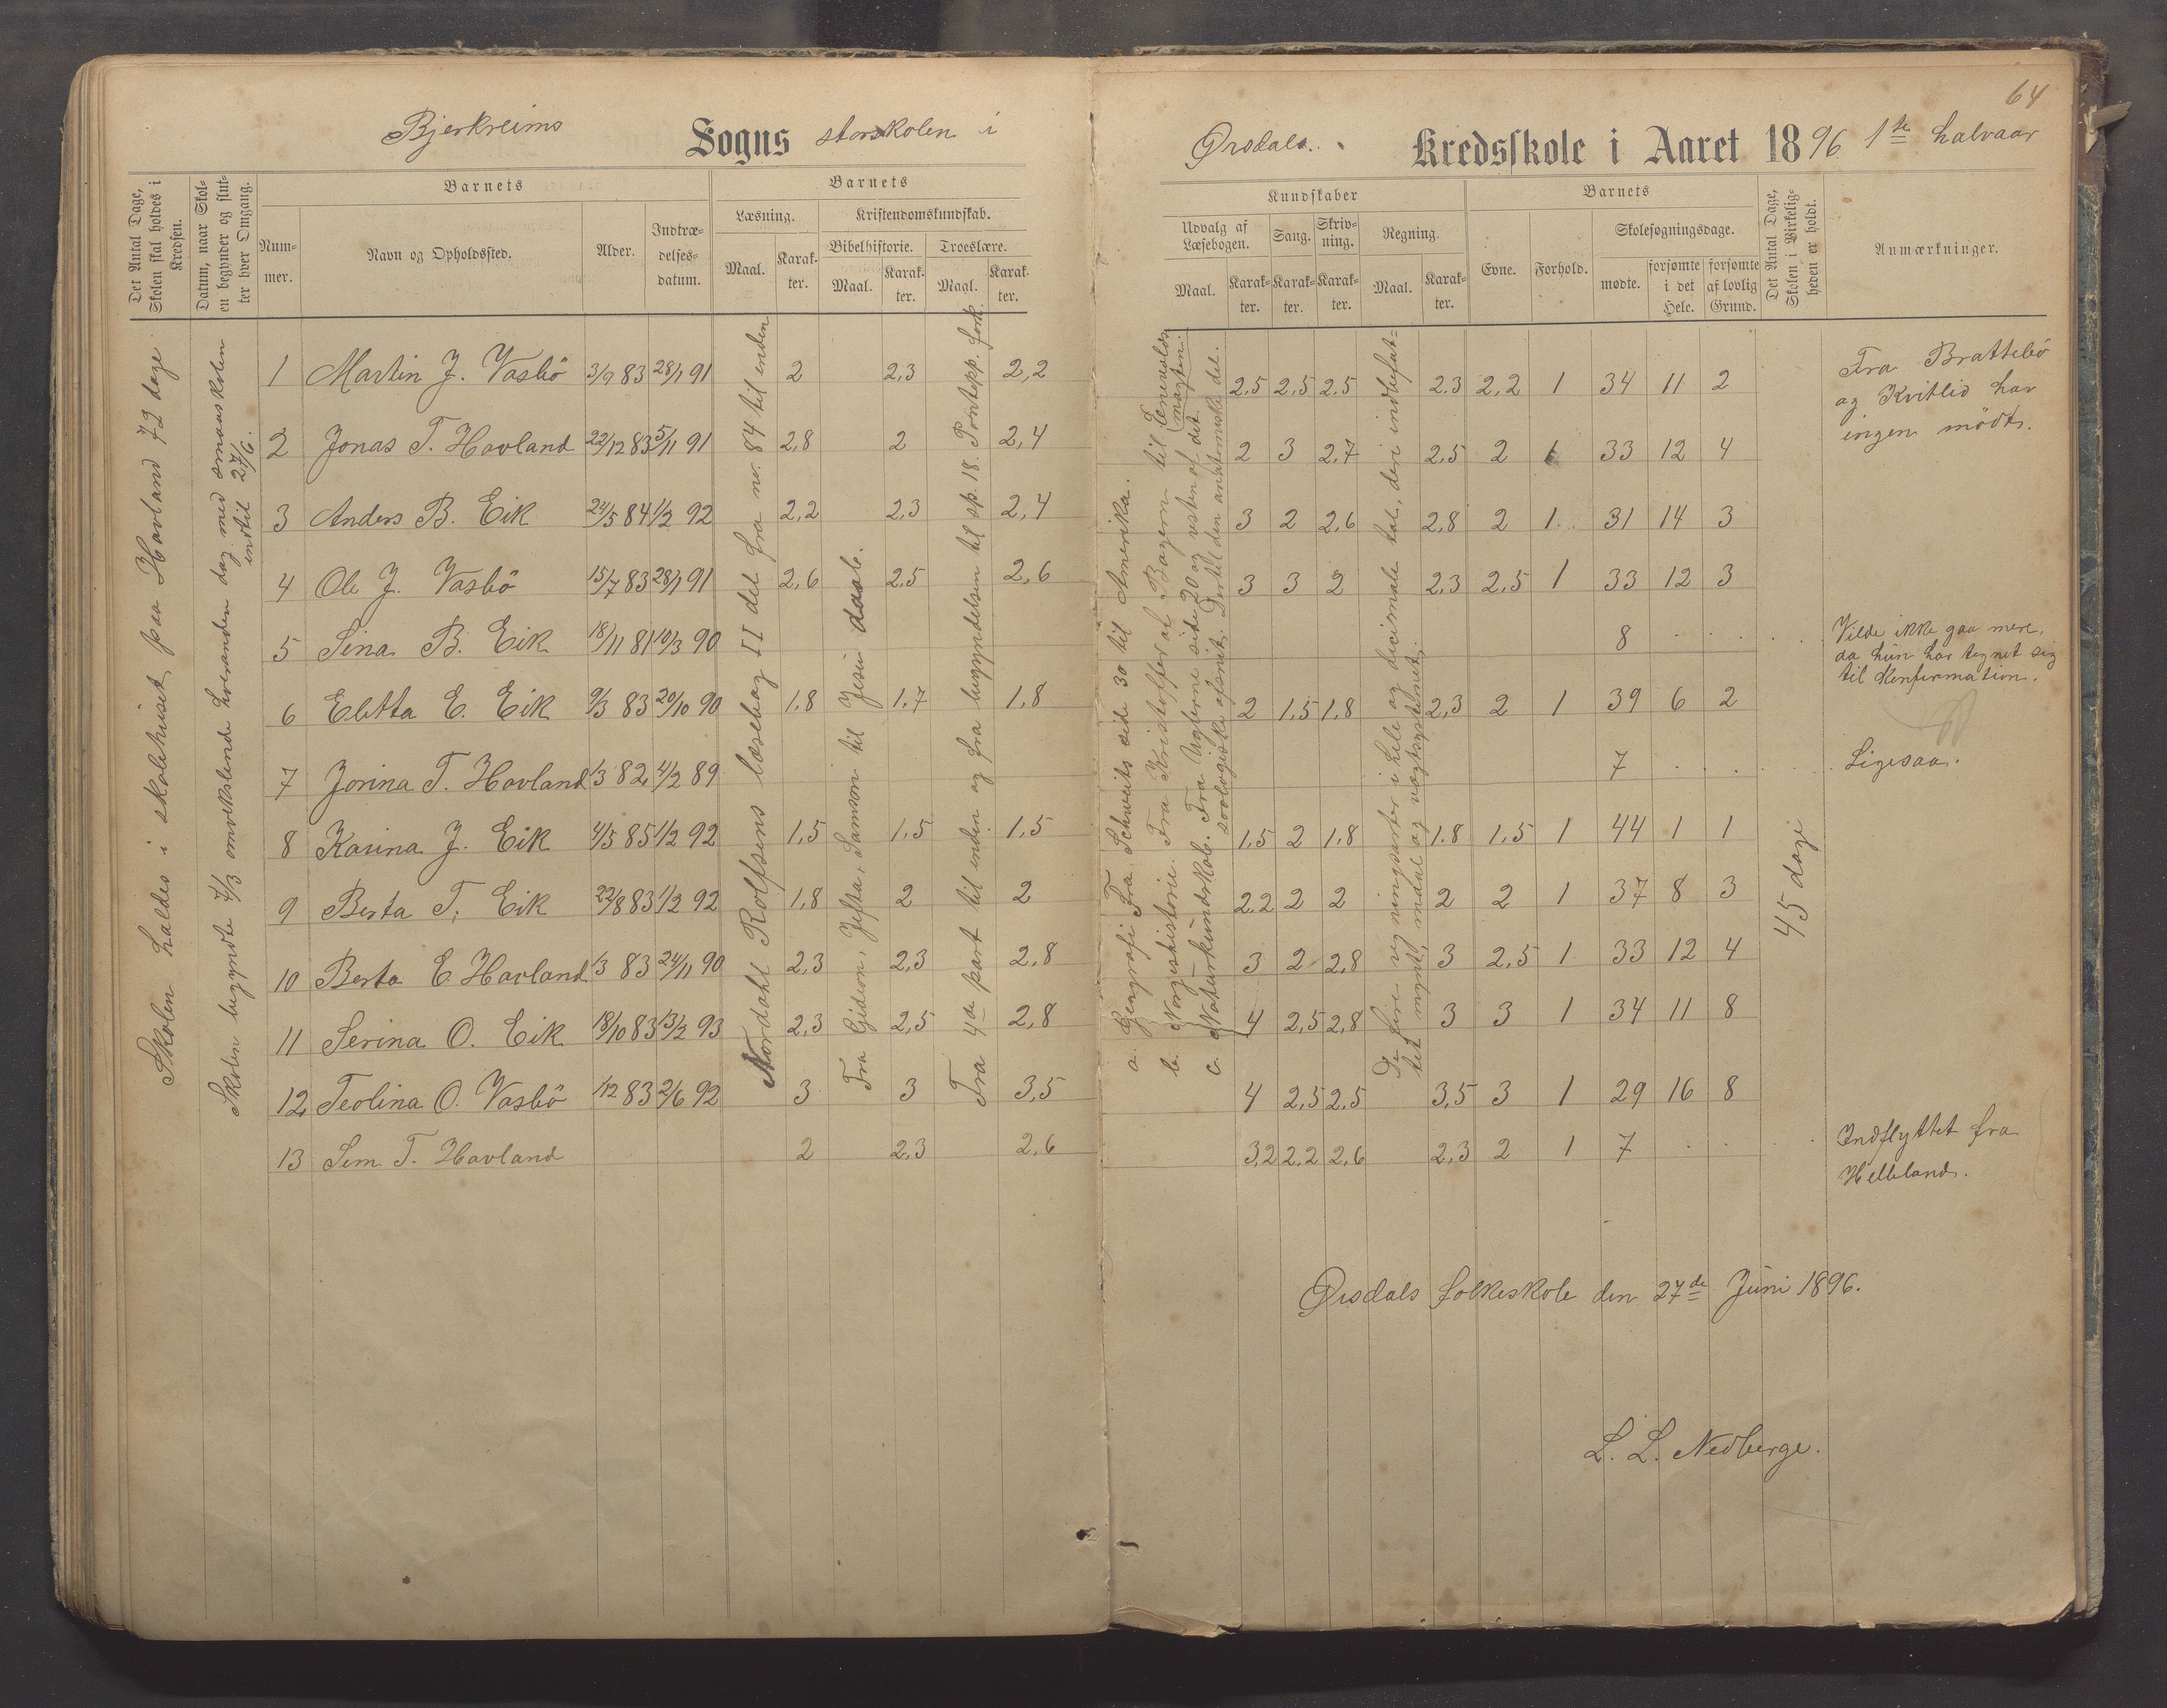 64
Bjerkreims Sogns storskolen i
Ørsdals Kredsskole i Aaret 1896 1ste halvaar
Det Antal Dage, Skolen skal holdes i Kredsen.
Datum, naar Skolen begynder og slutter hver Omgang.
Barnets
Nummer.
Navn og Opholdssted.
Alder.
Indtrædelsesdatum.
Barnets
Læsning.
Maal.
Karakter.
Kristendomskundskab.
Bibelhistorie.
Maal.
Karakter.
Troeslære.
Maal.
Karakter.
Kundskaber
Udvalg af Læsebogen.
Maal.
Karakter.
Sang.
Karakter.
Skrivning.
Karakter.
Regning.
Maal.
Karakter.
Barnets
Evne.
Forhold.
Skolesøgningsdage.
mødte.
forsømte i det Hele.
forsømte af lovlig Grund.
Det Antal Dage, Skolen i Virkeligheden er holdt.
Anmærkninger.
Skolen holdes i skolehuset paa Hovland 72 dage
Skolen begyndte 4/3 omvekslende hveranden dag med smaaskolen
indtil 27/6.
Nordahl Rolfsens læsebog II del fra nr. 84 til enden
Fra Gideon, Jefta, Samson til Jesu daab.
Fra 4de part til enden og fra begyndelsen til sp. 18. Pontopp. fork.
a. Geografi Fra Schweits side 30 til Amerika.
b. Norgeshistorie. Fra Kristoffer af Bayern til Enevoldsmagten.
c. Naturkundskab. Fra Uglerne side 20 og resten af det
zoologiske afsnit. Dertil den anatomiske del.
De fire regningsarter i hele og decimale tal, deri indbefattet mynt, medal og vægtsystemet.
1 Martin J. Vasbö 3/9 83 28/1 91 2 2,3 2,2 2,5 2,5 2,5 2,3 2,2 1 34 11 2
Fra Brattebö
og Kvitlid har
ingen mödt.
2 Jonas T. Hovland 22/12 83 5/11 91 2,8 2 2,4 2 3 2,7 2,5 2 1 33 12 4
3 Anders B. Eik 22/5 84 1/2 92 2,2 2,3 2,4 3 2 2,6 2,8 2 1 31 14 3
4 Ole J. Vasbö 15/7 83 28/1 91 2,6 2,5 2,6 3 3 2 2,3 2,5 1 33 12 3
5 Sina B. Eik 18/11 81 10/3 90 8
Vilde ikke gaa mere,
da hun har tegnet sig
til Konfirmation.
6 Elitta E. Eik 9/3 83 20/10 90 1,8 1,7 1,8 2 1,5 1,8 2,3 2 1 39 6 2
7 Jorina T. Hovland 1/3 82 4/2 89 7
Ligesaa.
8 Karina J. Eik 4/5 85 1/2 92 1,5 1,5 1,5 1,5 2 1,8 1,8 1,5 1 44 1 1
9 Berta T. Eik 22/8 83 1/2 92 1,8 2 2 2,2 2 2 2 2 1 37 8 3
45 dage
10 Berta E Hovland 1/3 83 24/11 90 2,3 2,3 2,8 3 2 2,8 3 2,5 1 33 12 4
11 Serina O. Eik 18/10 83 13/2 93 2,3 2,5 2,8 4 2,5 2,8 3 3 1 34 11 8
12 Teolina O. Vasbö 1/12 83 2/6 92 3 3 3,5 4 2,5 2,5 3,5 3 1 29 16 8
13 Sem T. Hovland 2 2,3 2,6 3,2 2,2 2,6 2,3 2 1 7
Indflyttet fra
Helleland.
Ørsdals folkeskole den 27de Juni 1896.
L. L. Nedberge.